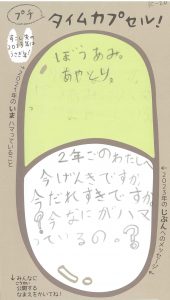 プチ
タイムカプセル!
2021年のいまハマっていること
ぼうあみ。
あやとり。
2023年のじぶんへのメッセージ
2年ごのわたしへ
今げんきですか
今だれすきですか
?今なにがハマ
っているの。?
↓みんなに
公開する
なまえをかいてね!